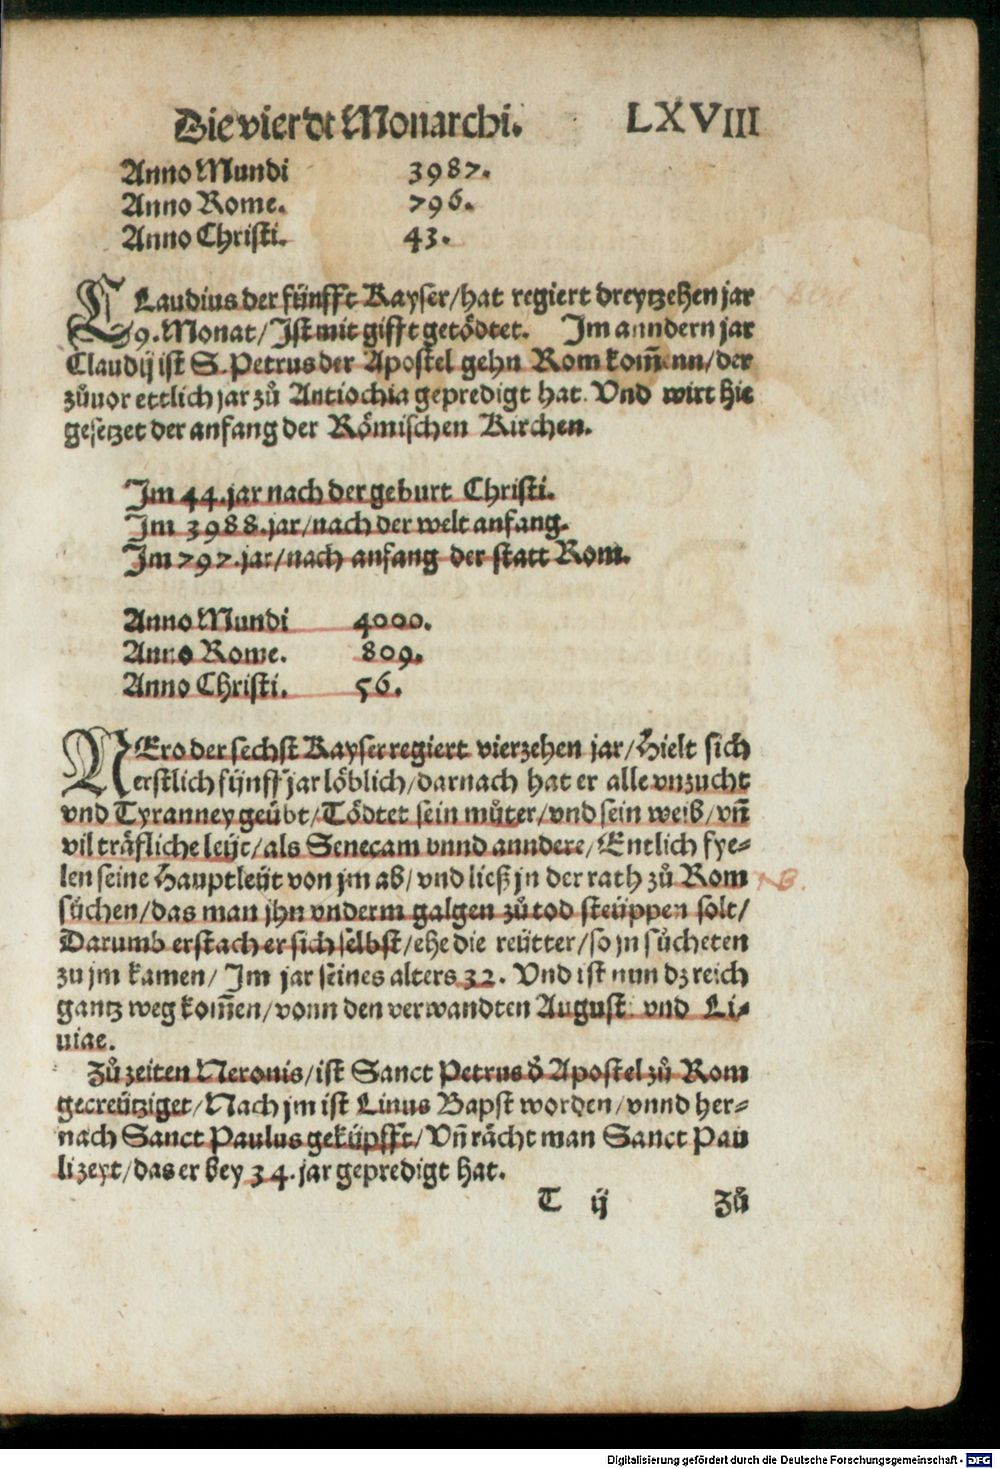 Die vierdt Monarchi. LXVIII
Anno Mundi 3987.
Anno Rome. 796.
Anno Christi. 43.
CLaudius der fünfft Kayser/hat regiert dreytzehen jar
9. Monat/Ist mit gifft getödtet. Im anndern jar
Claudij ist S. Petrus der Apostel gehn Rom kom̄enn/der
zůuor ettlich jar zů Antiochia gepredigt hat. Vnd wirt hie
gesetzet der anfang der Römischen Kirchen.
Im 44. jar nach der geburt Christi.
Im 3988. jar/nach der welt anfang.
Im 797. jar/nach anfang der statt Rom.
Anno Mundi 4000.
Anno Rome. 809.
Anno Christi. 56.
NEro der sechst Kayser regiert vierzehen jar/Hielt sich
erstlich fünff jar löblich/darnach hat er alle vnzucht
vnd Tyranney geübt/Tödtet sein můter/vnd sein weib/vn̄
vil träfliche leüt/als Senecam vnnd anndere/Entlich fye-
len seine Hauptleüt von jm ab/vnd ließ jn der rath zů Rom
sůchen/das man jhn vnderm galgen zů tod steüppen solt/
Darumb erstach er sich selbst/ehe die reütter/so jn sůcheten
zu jm kamen/Im jar seines alters 32. Vnd ist nun dz reich
gantz weg kom̄en/vonn den verwandten August. vnd Li-
uiae.
Zů zeiten Neronis/ist Sanct Petrus d̓ Apostel zů Rom
gecreütziget/Nach jm ist Linus Bapst worden/vnnd her-
nach Sanct Paulus geküpfft/Vn̄ rächt man Sanct Pau
li zeyt/das er bey 34. jar gepredigt hat.
T ij Zů
Digitalisierung gefördert durch die Deutsche Forschungsgemeinschaft - DFG